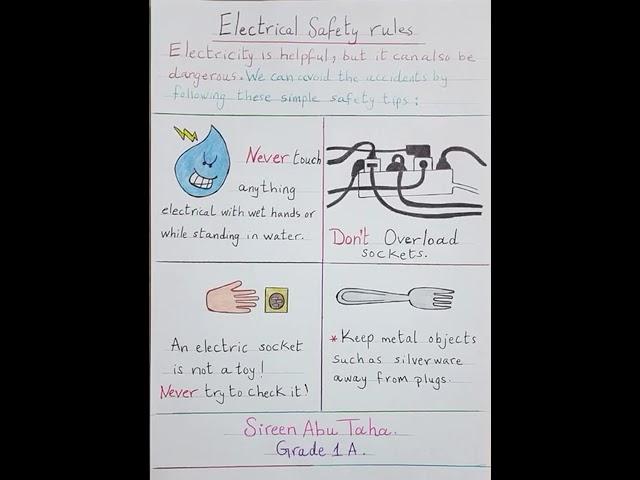 Electrical Safety rules
Electricity is helpful, but it can also be
dangerous. We can avoid the accidents by
following these simple safety tips :
Never touch
anything
electrical with wet hands or
while standing in water.
Don't Overload
sockets.
An electric socket
is not a toy!
Never try to check it!
* Keep metal objects
such as silverware
away from plugs.
Sireen Abu Taha.
Grade 1 A.